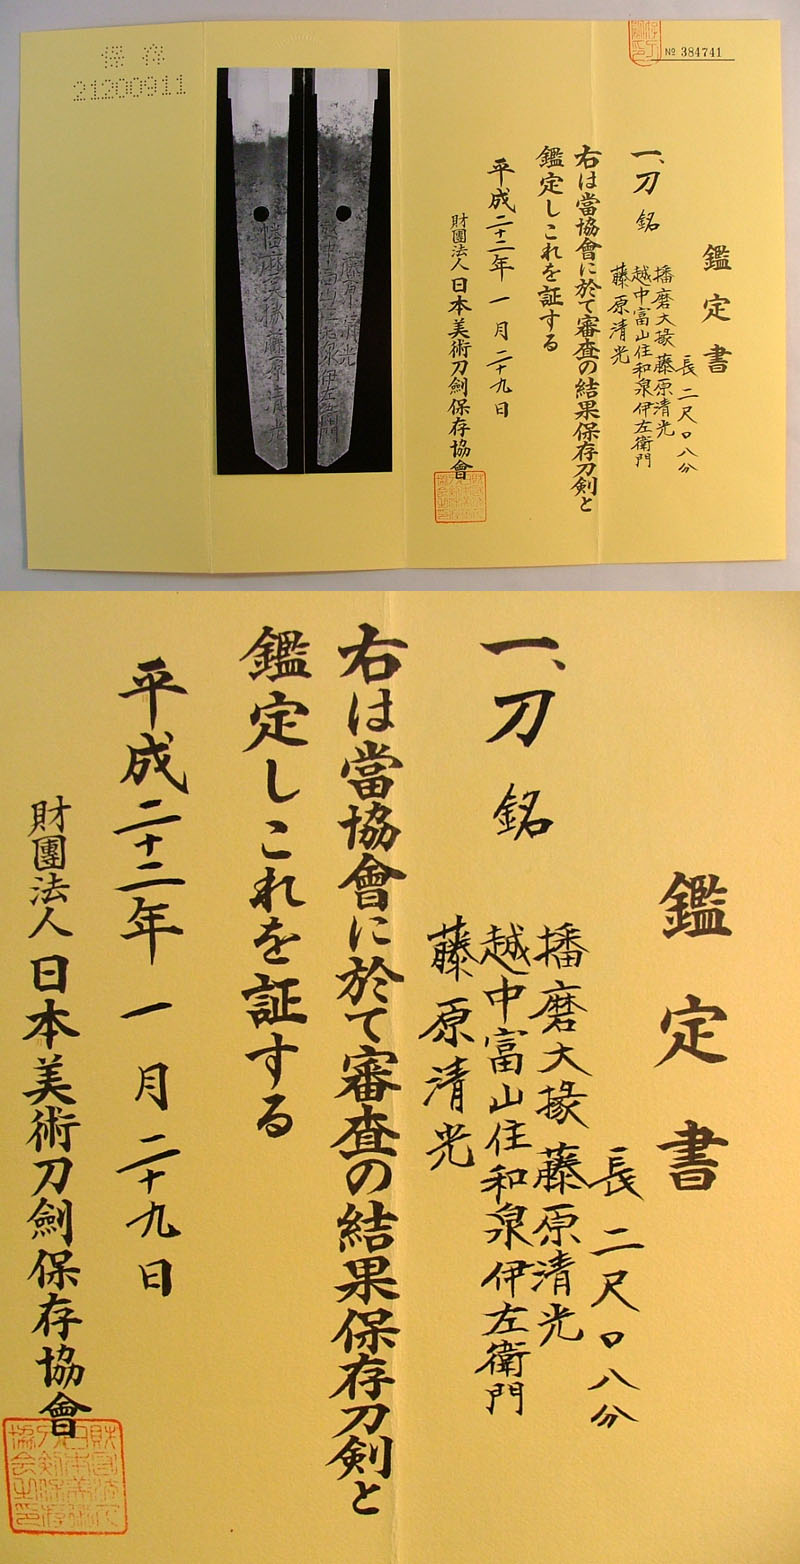 保存
21200911
№ 384741
鑑定書
一、刀 銘
長 二尺〇八分
播磨大掾藤原清光
越中富山住和泉伊左衛門
藤原清光
右は當協會に於て審査の結果保存刀剣と
鑑定しこれを証する
平成二十二年 一月 二十九日
財團法人 日本美術刀劍保存協會
播麻大掾藤原清光
藤原清光
鑑定書
一、刀 銘
長 二尺〇八分
播磨大掾藤原清光
越中富山住和泉伊左衛門
藤原清光
右は當協會に於て審査の結果保存刀剣と
鑑定しこれを証する
平成二十二年 一月 二十九日
財團法人 日本美術刀劍保存協會